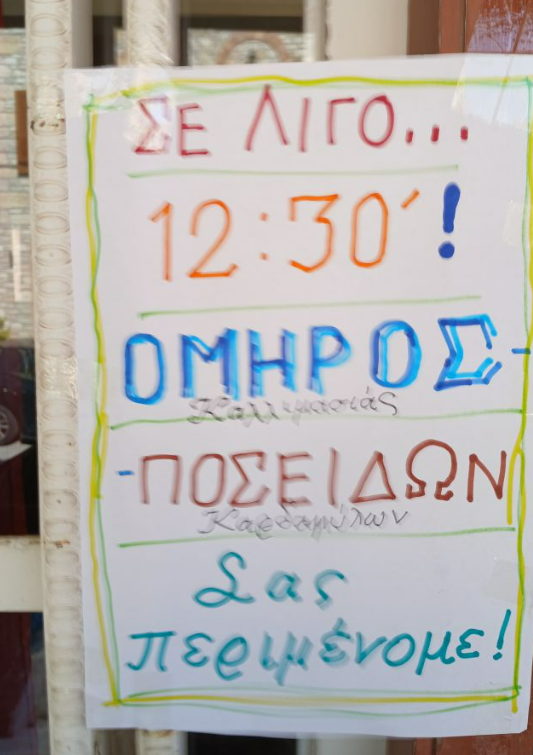 ΣΕ ΛΙΓΟ...
12:30´!
ΟΜΗΡΟΣ-
Καλλιμασιάς
-ΠΟΣΕΙΔΩΝ
Καρδαμύλων
Σας
περιμένομε!